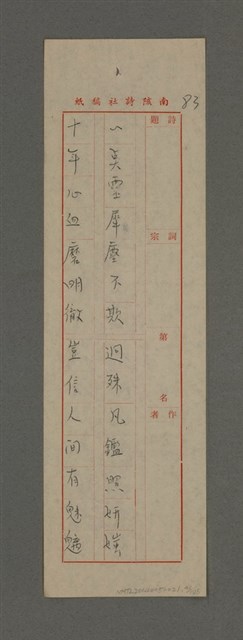 83
南陔詩社稿紙
詩題
詞宗
第 名
作者
一奌霊犀塵不欺 迥殊凡鑑照妍媸
十年心 磨明徹 豈信人間有魅魑